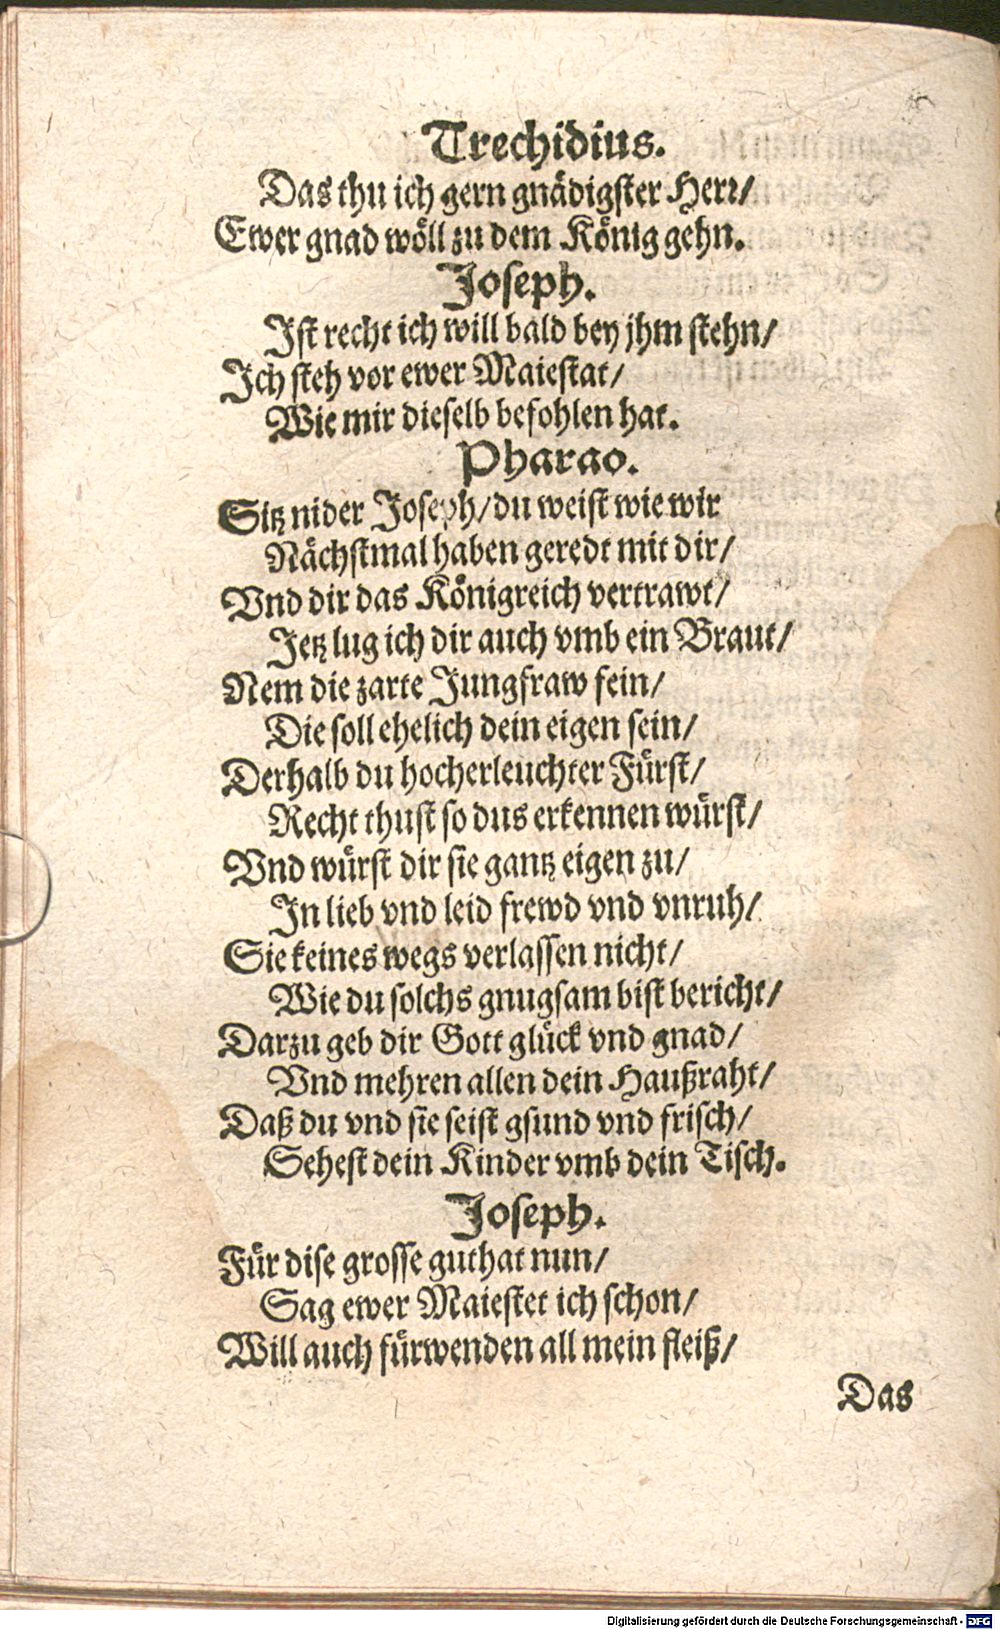 Trechidius.
Das thu ich gern gnädigster Herr/
Ewer gnad wöll zu dem König gehn.
Joseph.
Ist recht ich will bald bey jhm stehn/
Ich steh vor ewer Maiestat/
Wie mir dieselb befohlen hat.
Pharao.
Sitz nider Joseph/ du weist wie wir
Nächstmal haben geredt mit dir/
Vnd dir das Königreich vertrawt/
Jetz lug ich dir auch vmb ein Braut/
Nem die zarte Jungfraw fein/
Die soll ehelich dein eigen sein/
Derhalb du hocherleuchter Fürst/
Recht thust so dus erkennen würst/
Vnd würst dir sie gantz eigen zu/
In lieb vnd leid frewd vnd vnruh/
Sie keines wegs verlassen nicht/
Wie du solchs gnugsam bist bericht/
Darzu geb dir Gott glück vnd gnad/
Vnd mehren allen dein Haußraht/
Daß du vnd sie seist gsund vnd frisch/
Sehest dein Kinder vmb dein Tisch.
Joseph.
Für dise grosse guthat nun/
Sag ewer Maiestet ich schon/
Will auch fürwenden all mein fleiß/
Das
Digitalisierung gefördert durch die Deutsche Forschungsgemeinschaft - DFG